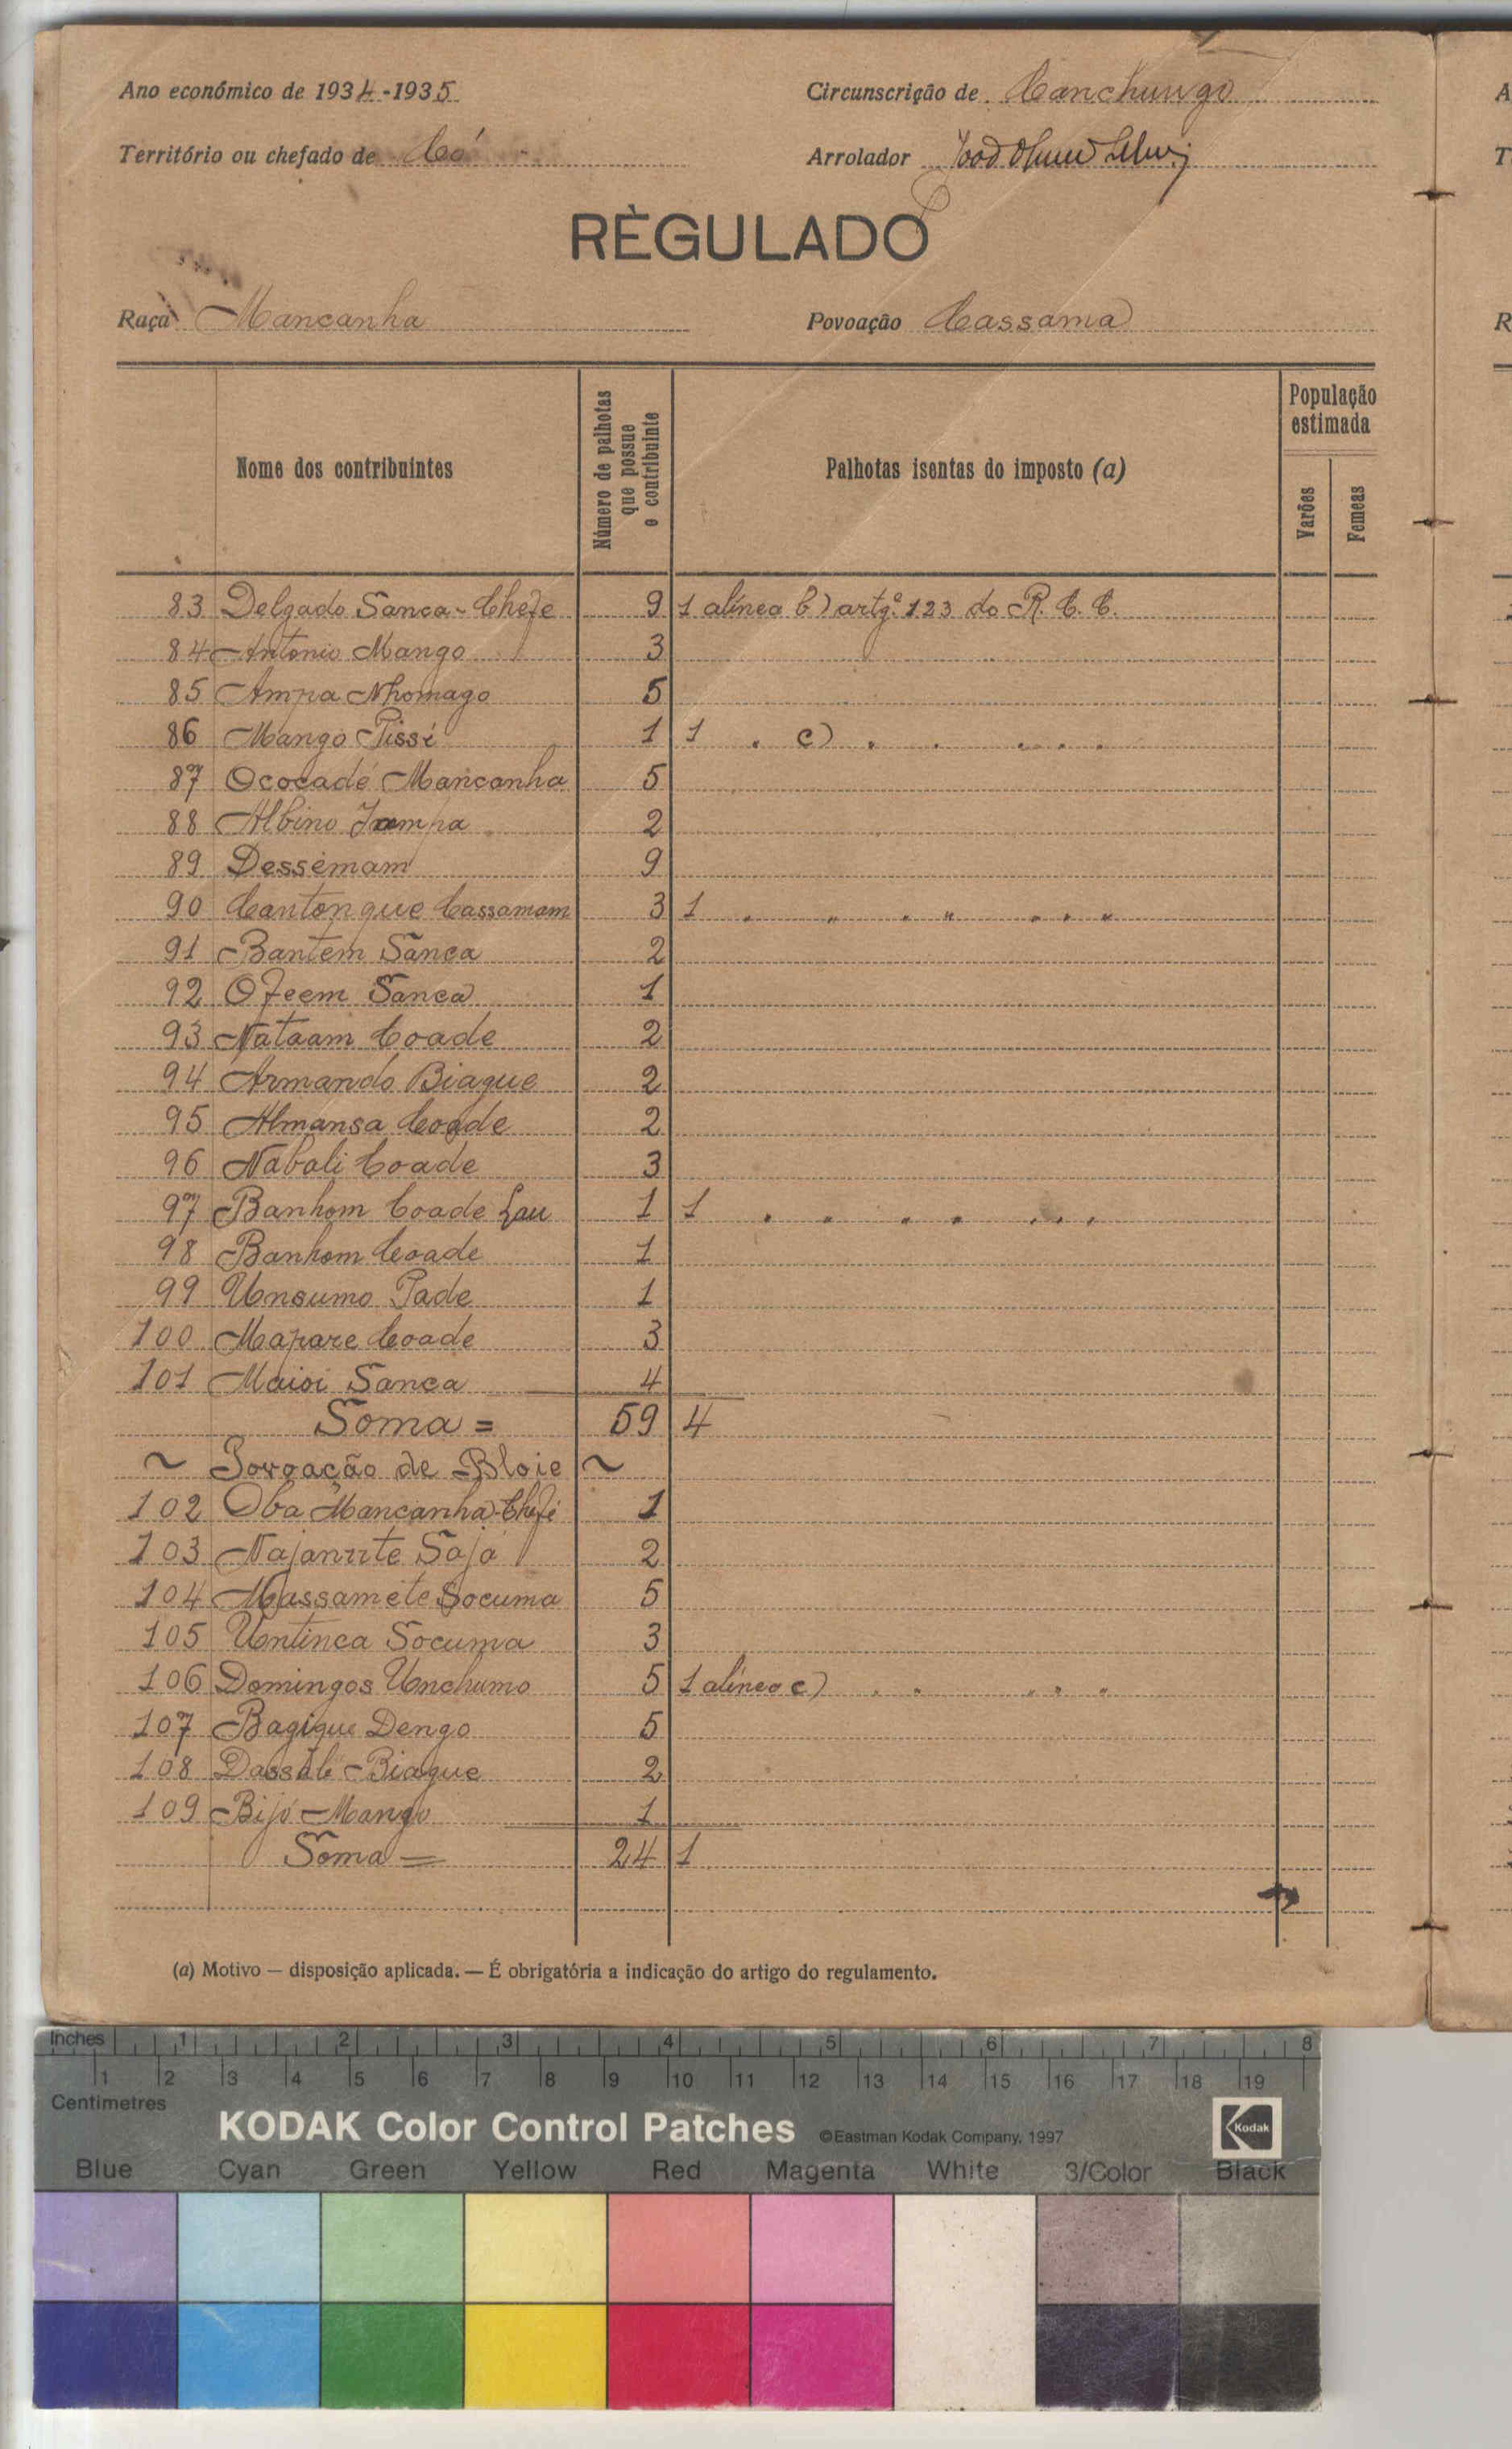 Ano económico de 1934-1935 Circunscrição de Canchungo
Território ou chefado de Có Arrolador
RÈGULADO
Raça Mancanha Povoação Cassama
Nome dos contribuintes
Número de palhotas que possue o contribuinte
Palhotas isentas do imposto (a)
População estimada
Varões
Femeas
83 Delgado Sanca - Chefe 9 1 alínea b) artgº 123 do R. C. C.
84 Antonio Mango 3
85 Ampa Nhomago 5
86 Mango Pissi 1 1 . c) . . . . .
87 Ococadé Mancanha 5
88 Albino Jampa 2
89 Dessémam 9
90 Cantongue Cassamam 3 1 . " . " . . "
91 Bantem Sanca 2
92 Ofeem Sanca 1
93 Nataam Coade 2
94 Armando Biague 2
95 Almansa Coade 2
96 Nabali Coade 3
97 Banhom Coade Lau 1 1 . . . . . . .
98 Banhom Coade 1
99 Unsumo Pade 1
100 Mapare Coade 3
101 Maioi Sanca 4
Soma = 59 4
~ Povoação de Bloie ~
102 Oba Mancanha - Chefe 1
103 Najanute Sajá 2
104 Massaméte Socuma 5
105 Untinca Socuma 3
106 Domingos Unchumo 5 1 alínea c) . . . . .
107 Bagique Dengo 5
108 Biague 2
109 Bijó Mango 1
Soma = 24 1
(a) Motivo — disposição aplicada. — É obrigatória a indicação do artigo do regulamento.
A
T
R
Inches 1 2 3 4 5 6 7 8
1 2 3 4 5 6 7 8 9 10 11 12 13 14 15 16 17 18 19
Centimetres
KODAK Color Control Patches ©Eastman Kodak Company, 1997 Kodak
Blue Cyan Green Yellow Red Magenta White 3/Color Black